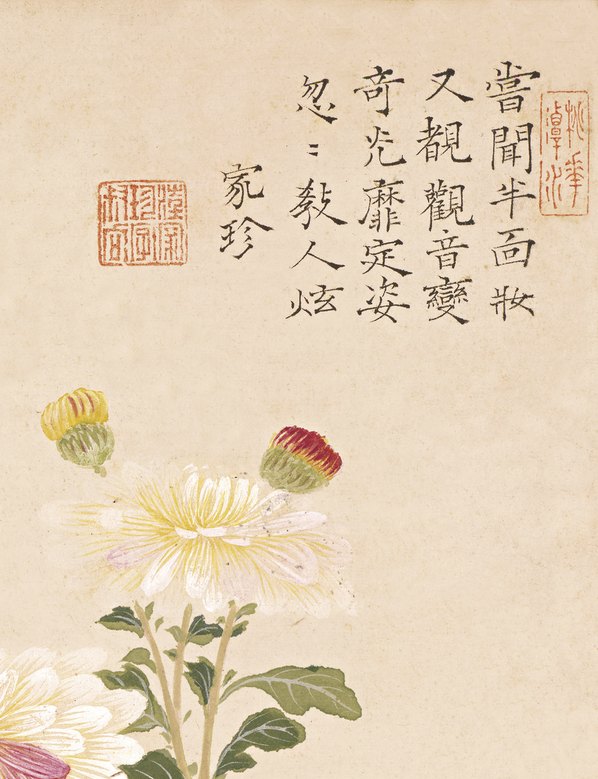 嘗聞半面妝
又覩觀音變
奇光靡定姿
忽〻教人炫
家珍